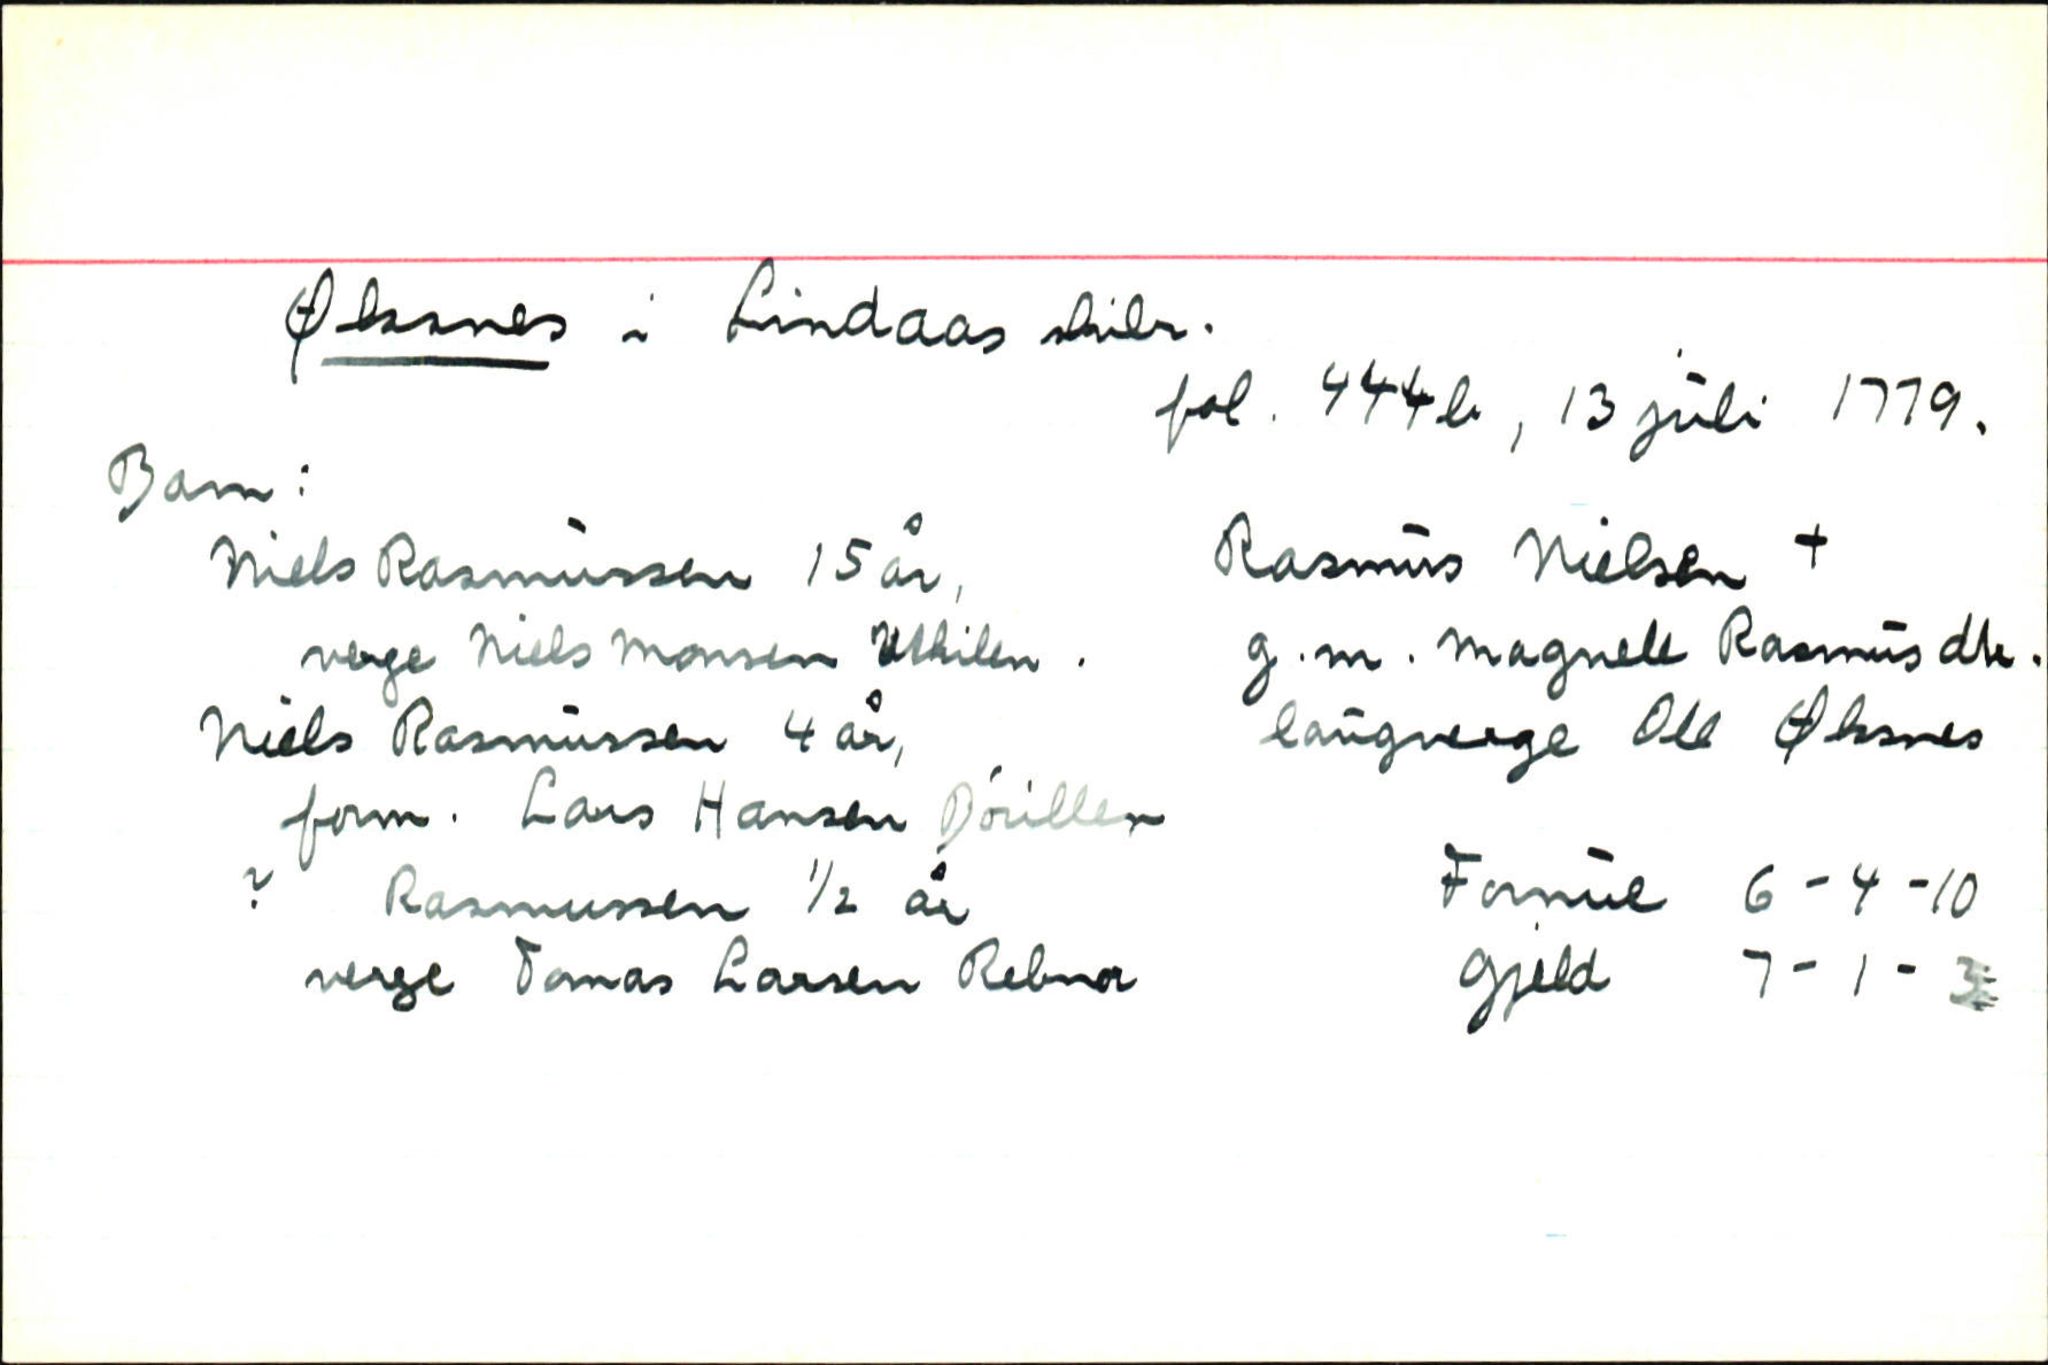 Øksnes i Lindaas skibr.
fol. 444b, 13 juli 1779.
Barn:
Niels Rasmussen 15 år,
verge Niels Monsen Utkilen.
Niels Rasmussen 4 år,
form. Lars Hansen
? Rasmussen 1/2 år
verge Tomas Larsen Rebnor
Rasmus Nielsen +
g.m. Magnele Rasmusdtr.
laugverge Ole Øksnes
Formue 6-4-10
Gjeld 7-1-3